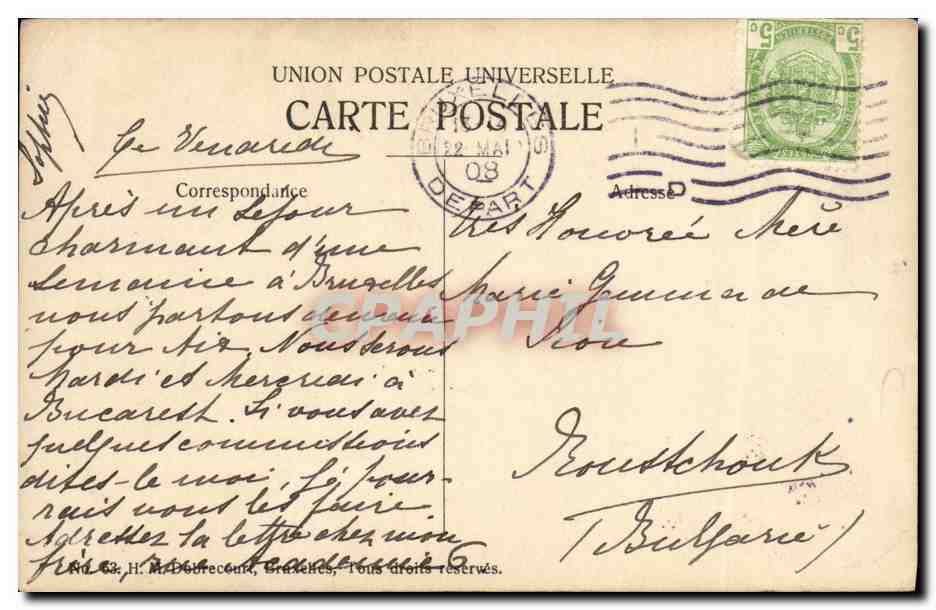 UNION POSTALE UNIVERSELLE
CARTE POSTALE
BRUXELLES
22 MAI
08
DEPART
D
5 c
c 5
Sophie
Ce Venaredi
Correspondance
Après un sejour
charmant d'une
semaine à Bruxelles
nous partons demain
pour Aix. Nous serons
Mardi et Mercredi à
Bucarest. Si vous avez
quelques commissions
dites-le moi, je pour-
rais vous les faire
Adressez la lettre chez mon
frère, rue academie 6
Adresse
très Honorée Mère
Marie de
Sion
Roustchouk
(Bulgarie)
No. 63. H. M. Dobrecourt, Bruxelles, Tous droits réservés.
CPAPHIL